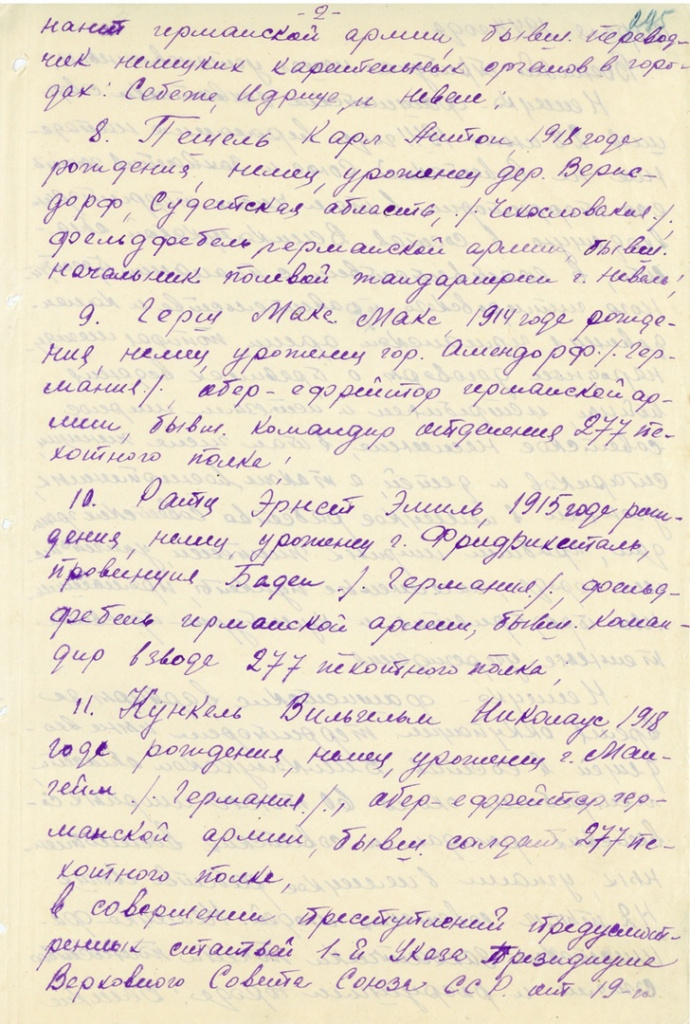 -2-
245
нант германской армии, бывш. перевод-
чик немецких карательных органов в горо-
дах: Себеже, Идрице, и Невеле;
8. Пешель Карл Антон, 1918 года
рождения, немец, уроженец дер. Верис-
дорф, Судетская область, /. Чехословакия./,
фельдфебель германской армии, бывш.
начальник полевой жандармерии г. Невель;
9. Герш Макс Макс, 1914 года рожде-
ния, немец, уроженец гор. Амендорф /. Гер-
мания./. обер-ефрейтор германской ар-
мии бывш. командир отделения 277 пе-
хотного полка;
10. Ратц Эрнст Эмиль, 1915 года рож-
дения, немец, уроженец г. Фридрихсталь,
провинция Баден /. Германия /. фельд-
фебель германской армии, бывш. коман-
дир взвода 277 пехотного полка;
11. Кункель Вильгельм Николаус 1918
года рождения, немец, уроженец г. Ман-
гейм /. Германия./., обер-ефрейтор гер-
манской армии, бывш. солдат 277 пе-
хотного полка,
в совершении преступлений предусмот-
ренных статьей 1-й Указа Президиума
Верховного Совета Союза ССР от 19-го